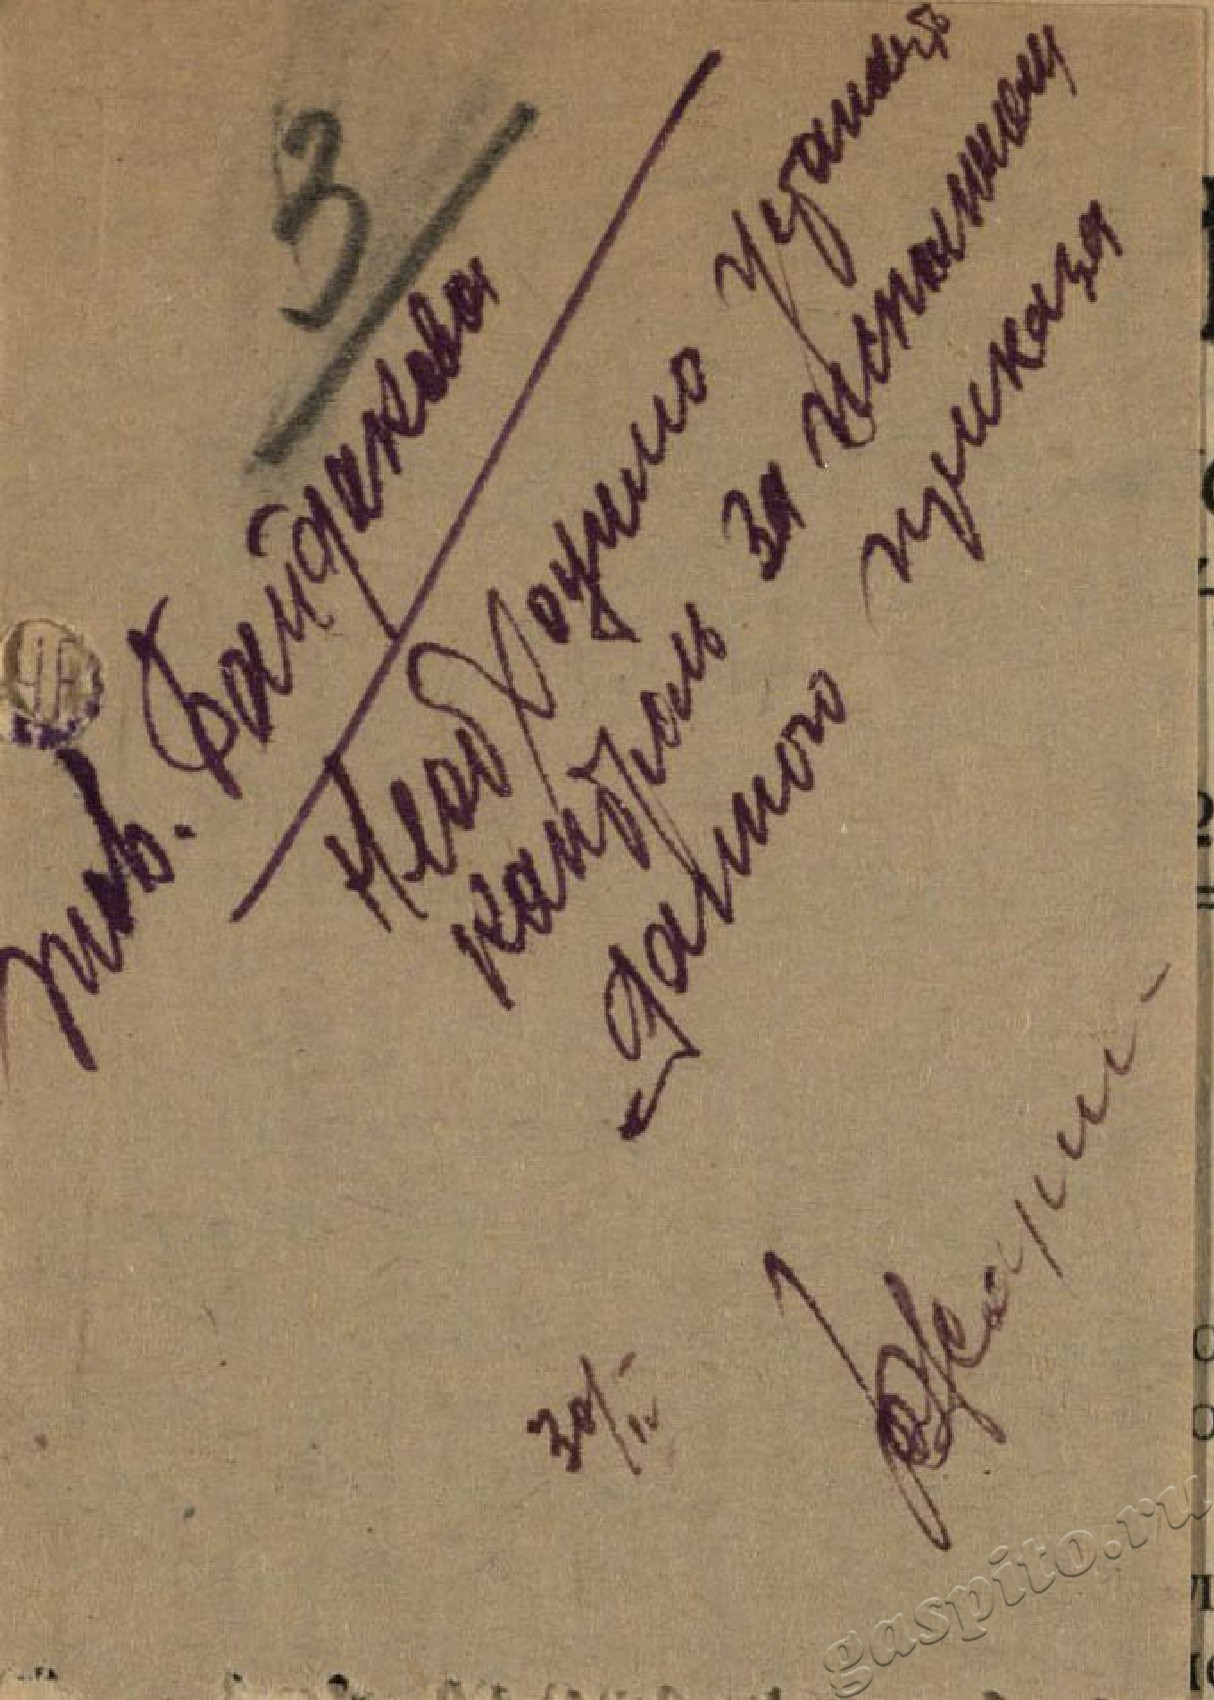 3
тов. Байдакова
Необходимо
контроль за исполнением
данного приказа
30/IV
gaspito.ru